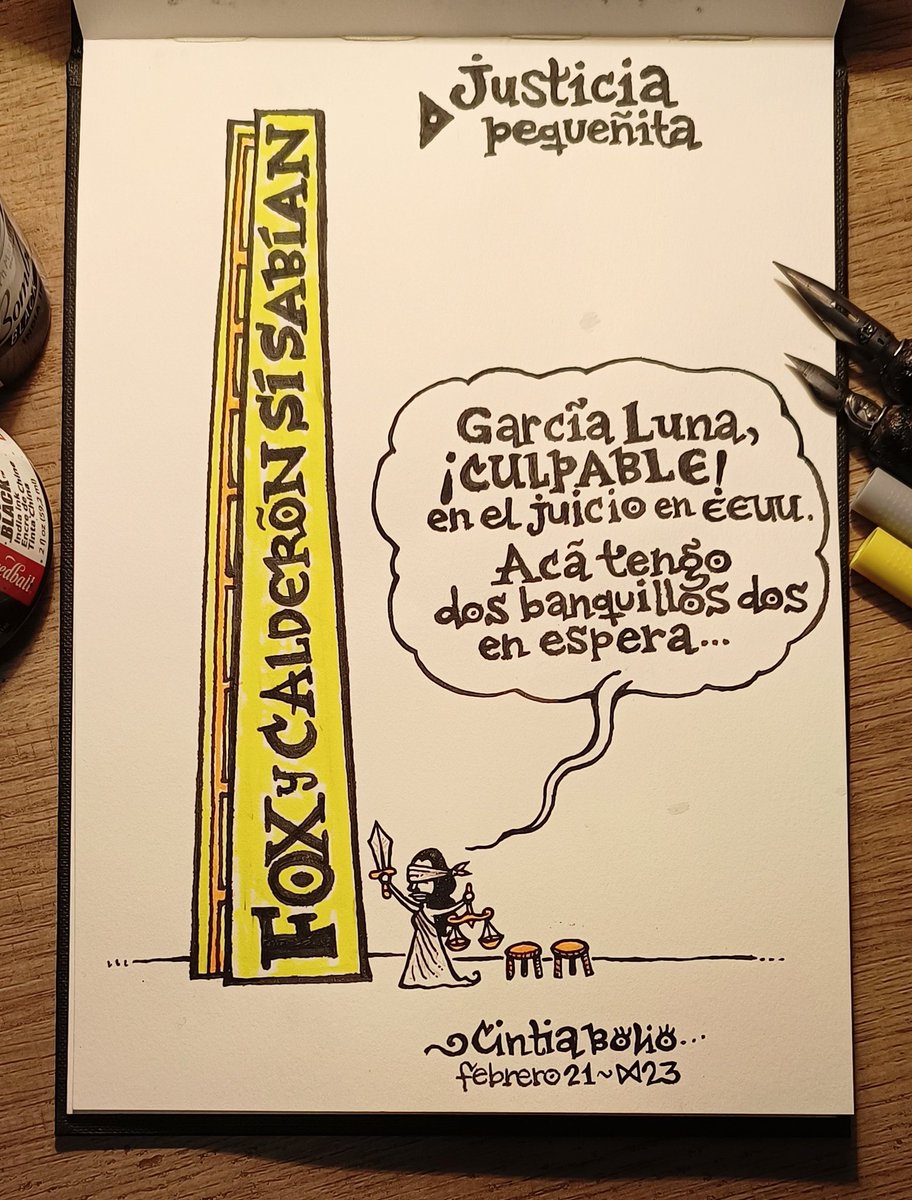 Justicia
pequeñita
FOX y CALDERÓN SÍ SABÍAN
García Luna,
¡CULPABLE!
en el juicio en EEUU.
Acá tengo
dos banquillos dos
en espera...
Cintia Bolio...
febrero 21~23
BLACK
India Ink
Encre de Chine
Tinta China
2 fl oz (59.2 ml)